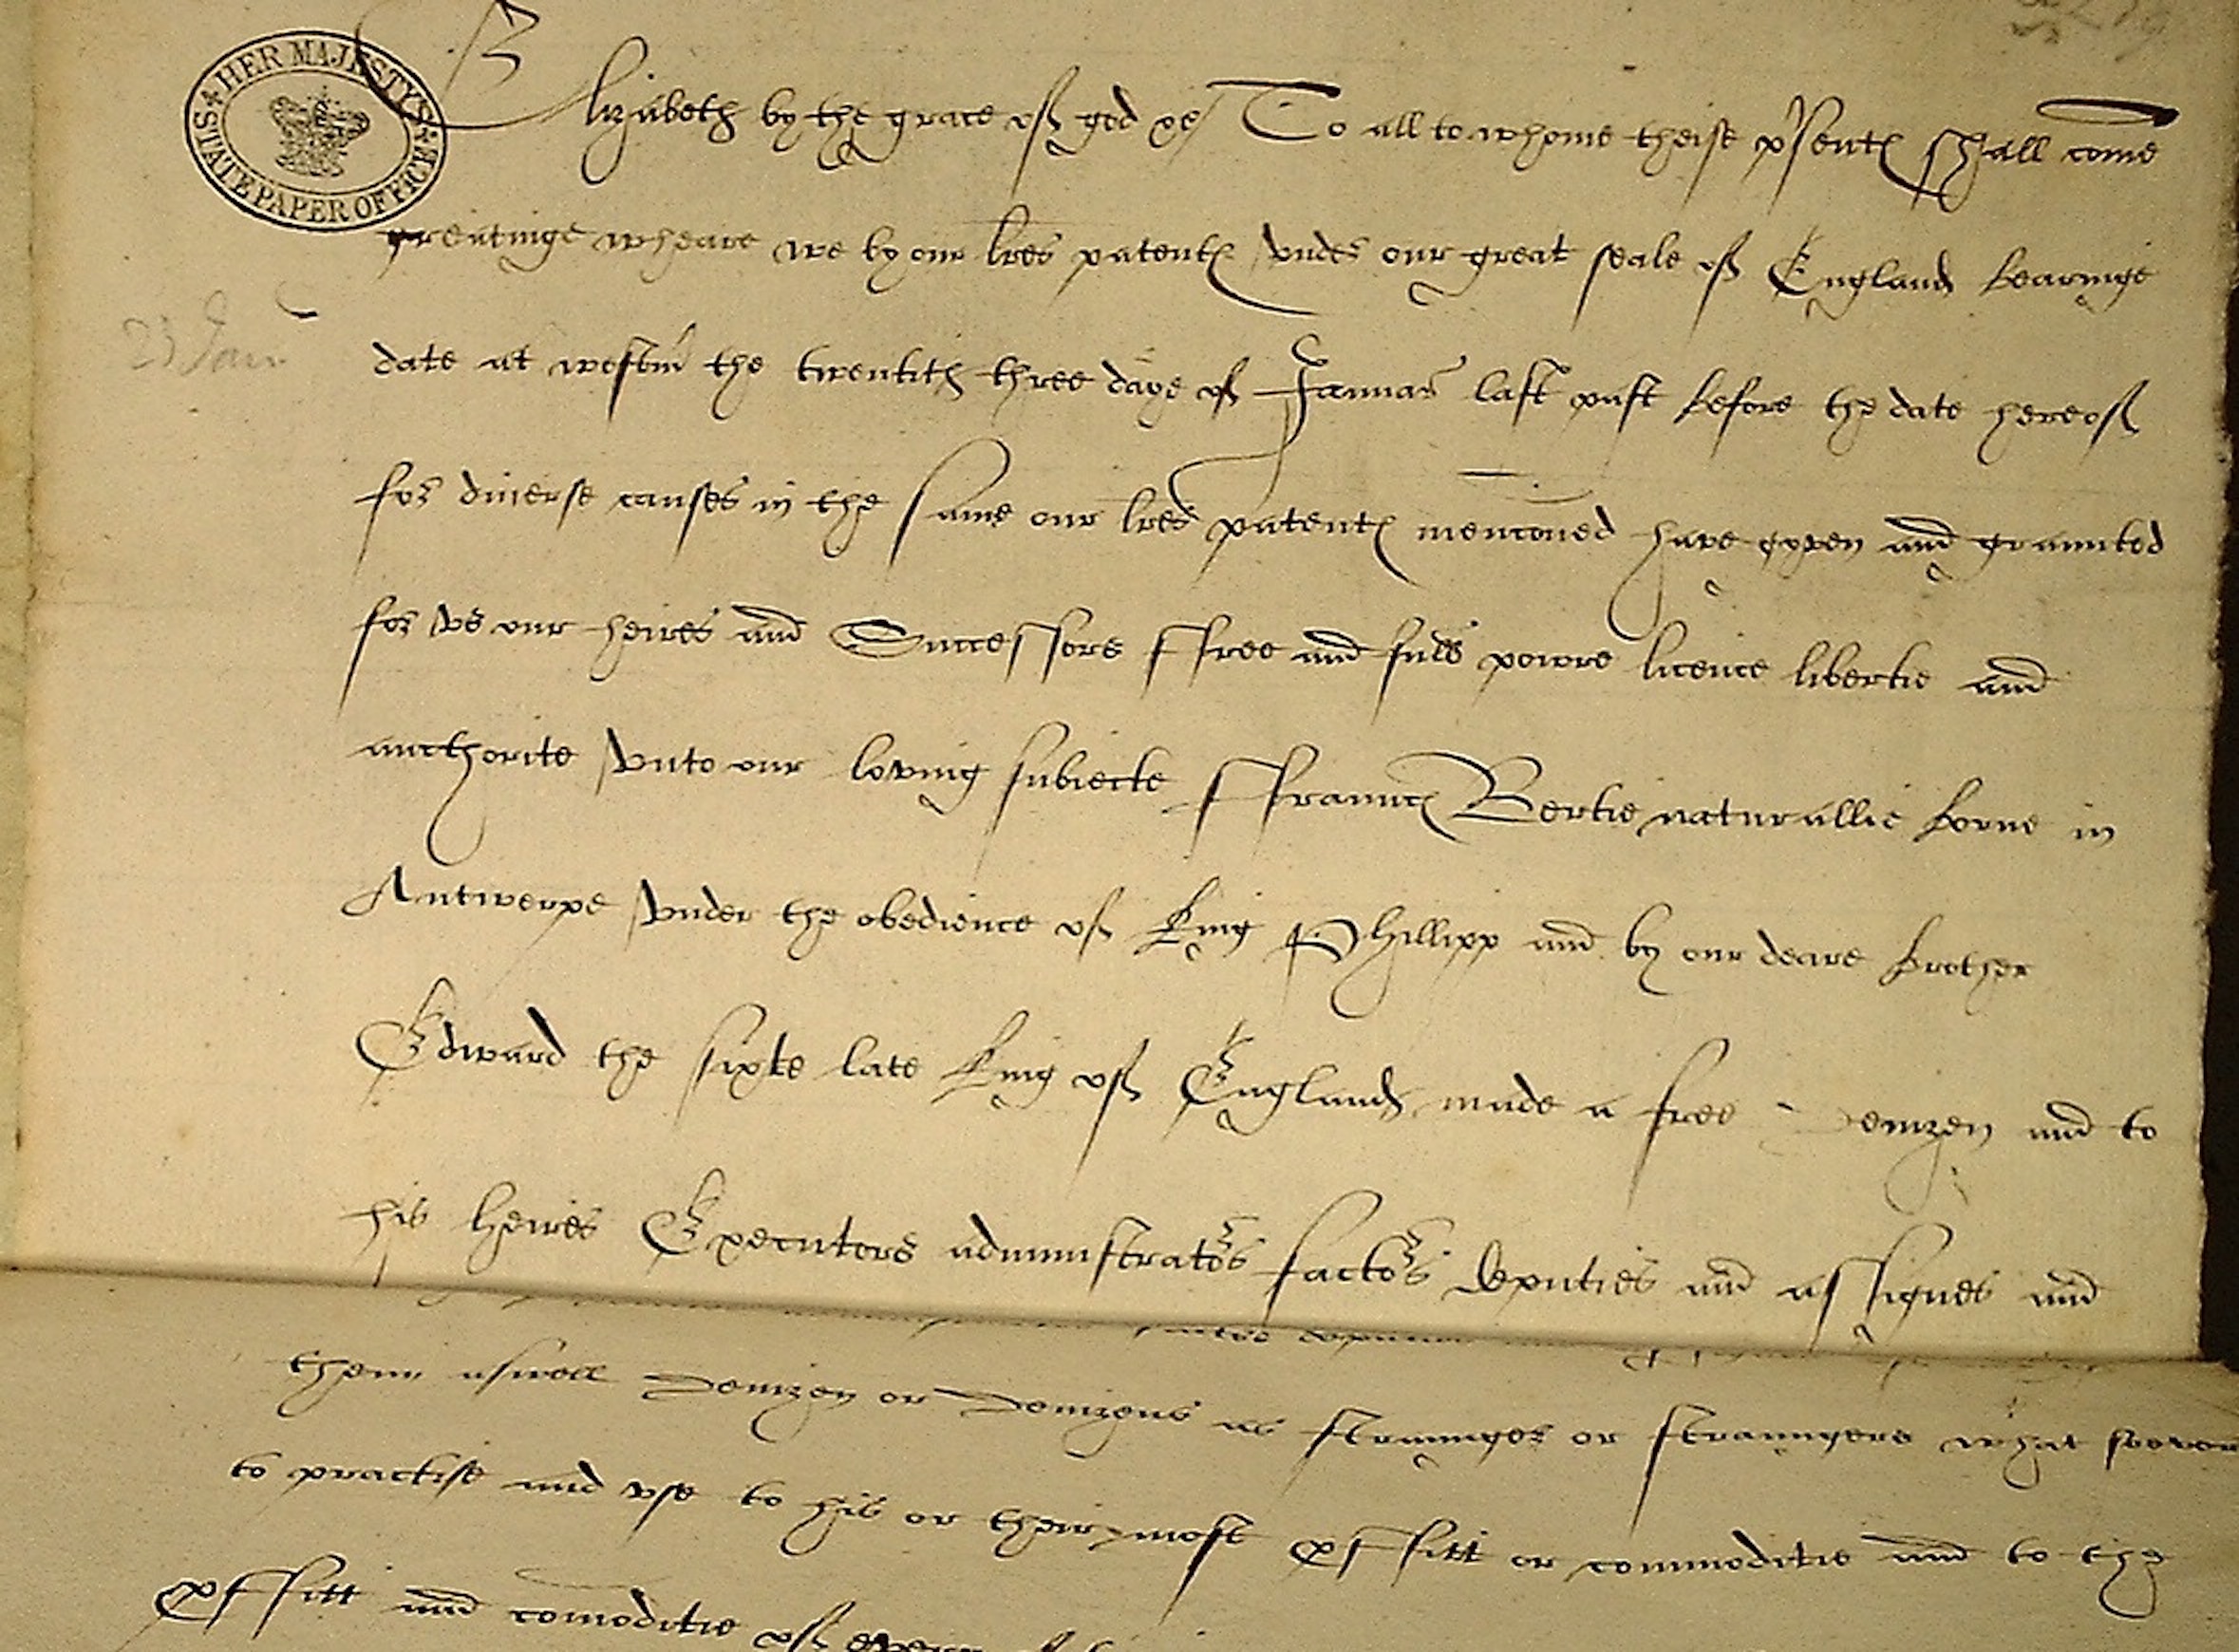 HER MAJESTYS STATE PAPER OFFICE
Elizabeth by the grace off god &c To all to whome theise pˀsentꝭ shall come
greatinge wheare we by our lr̃es patentꝭ vnder our great seale off England bearinge
23 Jan
date at westm̃ the twentith three daye off Januar̃ last past before the date hereoff
for diuerse causes in the same our lr̃es patentꝭ menc̃oned have gyven and graunted
for vs our heires and Successors ffree and full powre licence libertie and
aucthorite vnto our loving subiecte ffrauncꝭ Bertie naturallie borne in
Antwerpe vnder the obedience off King Phillipp and by our deare brother
Edward the sixte late King off England made a free Denizen and to
his heires Executors administratoʳs factoʳs deputies and assignes and
them aswell Denizen or Denizens as straunger or straungers what soever
to practise and vse to his or their most ꝓffitt or commoditie and to the
ꝓffitt and com̃oditie off